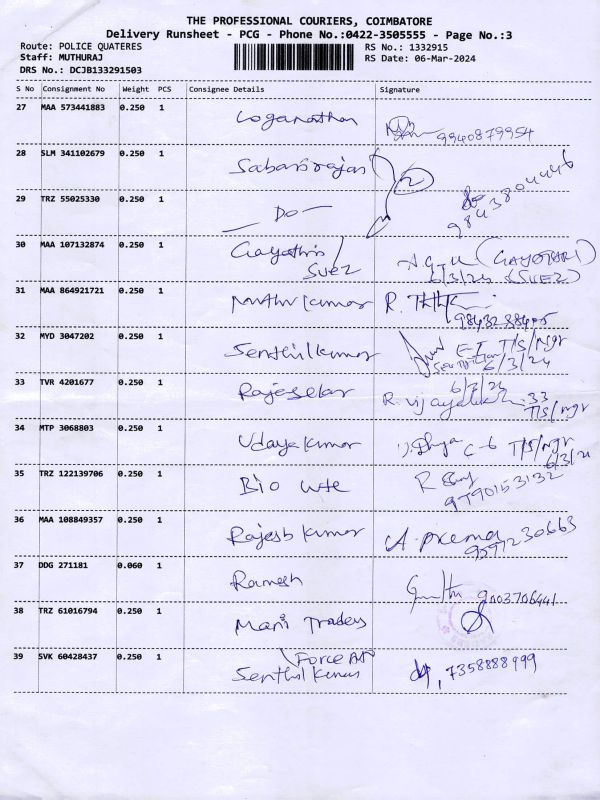 THE PROFESSIONAL COURIERS, COIMBATORE
Delivery Runsheet - PCG - Phone No.:0422-3505555 - Page No.:3
Route: POLICE QUATERES
RS No.: 1332915
Staff: MUTHURAJ
RS Date: 06-Mar-2024
DRS No.: DCJB133291503
S No Consignment No Weight PCS Consignee Details Signature
27 MAA 573441883 0.250 1 Loganathan 9940879954
28 SLM 341102679 0.250 1 Sabarirajan
29 TRZ 55025330 0.250 1 — Do — 9843804446
30 MAA 107132874 0.250 1 Gayathri / (GAYOTHRI)
SUEZ 6/3/24 (SUEZ)
31 MAA 864921721 0.250 1 Muthu kumar R.
32 MYD 3047202 0.250 1 Senthilkumar E-I T/S/Ngr
6/3/24
33 TVR 4201677 0.250 1 Rajesekar 6/3/24
R. Vijayalakshmi 33
T/S/Ngr
34 MTP 3068803 0.250 1 Udaya kumar C-6 T/S/Ngr
6/3/24
35 TRZ 122139706 0.250 1 Bio 9790153132
36 MAA 108849357 0.250 1 Rajesh kumar A. prema
9597230663
37 DDG 271181 0.060 1 Ramesh 9003706441
38 TRZ 61016794 0.250 1 Mani Traders
39 SVK 60428437 0.250 1 Force
Senthil kumar 7358888999